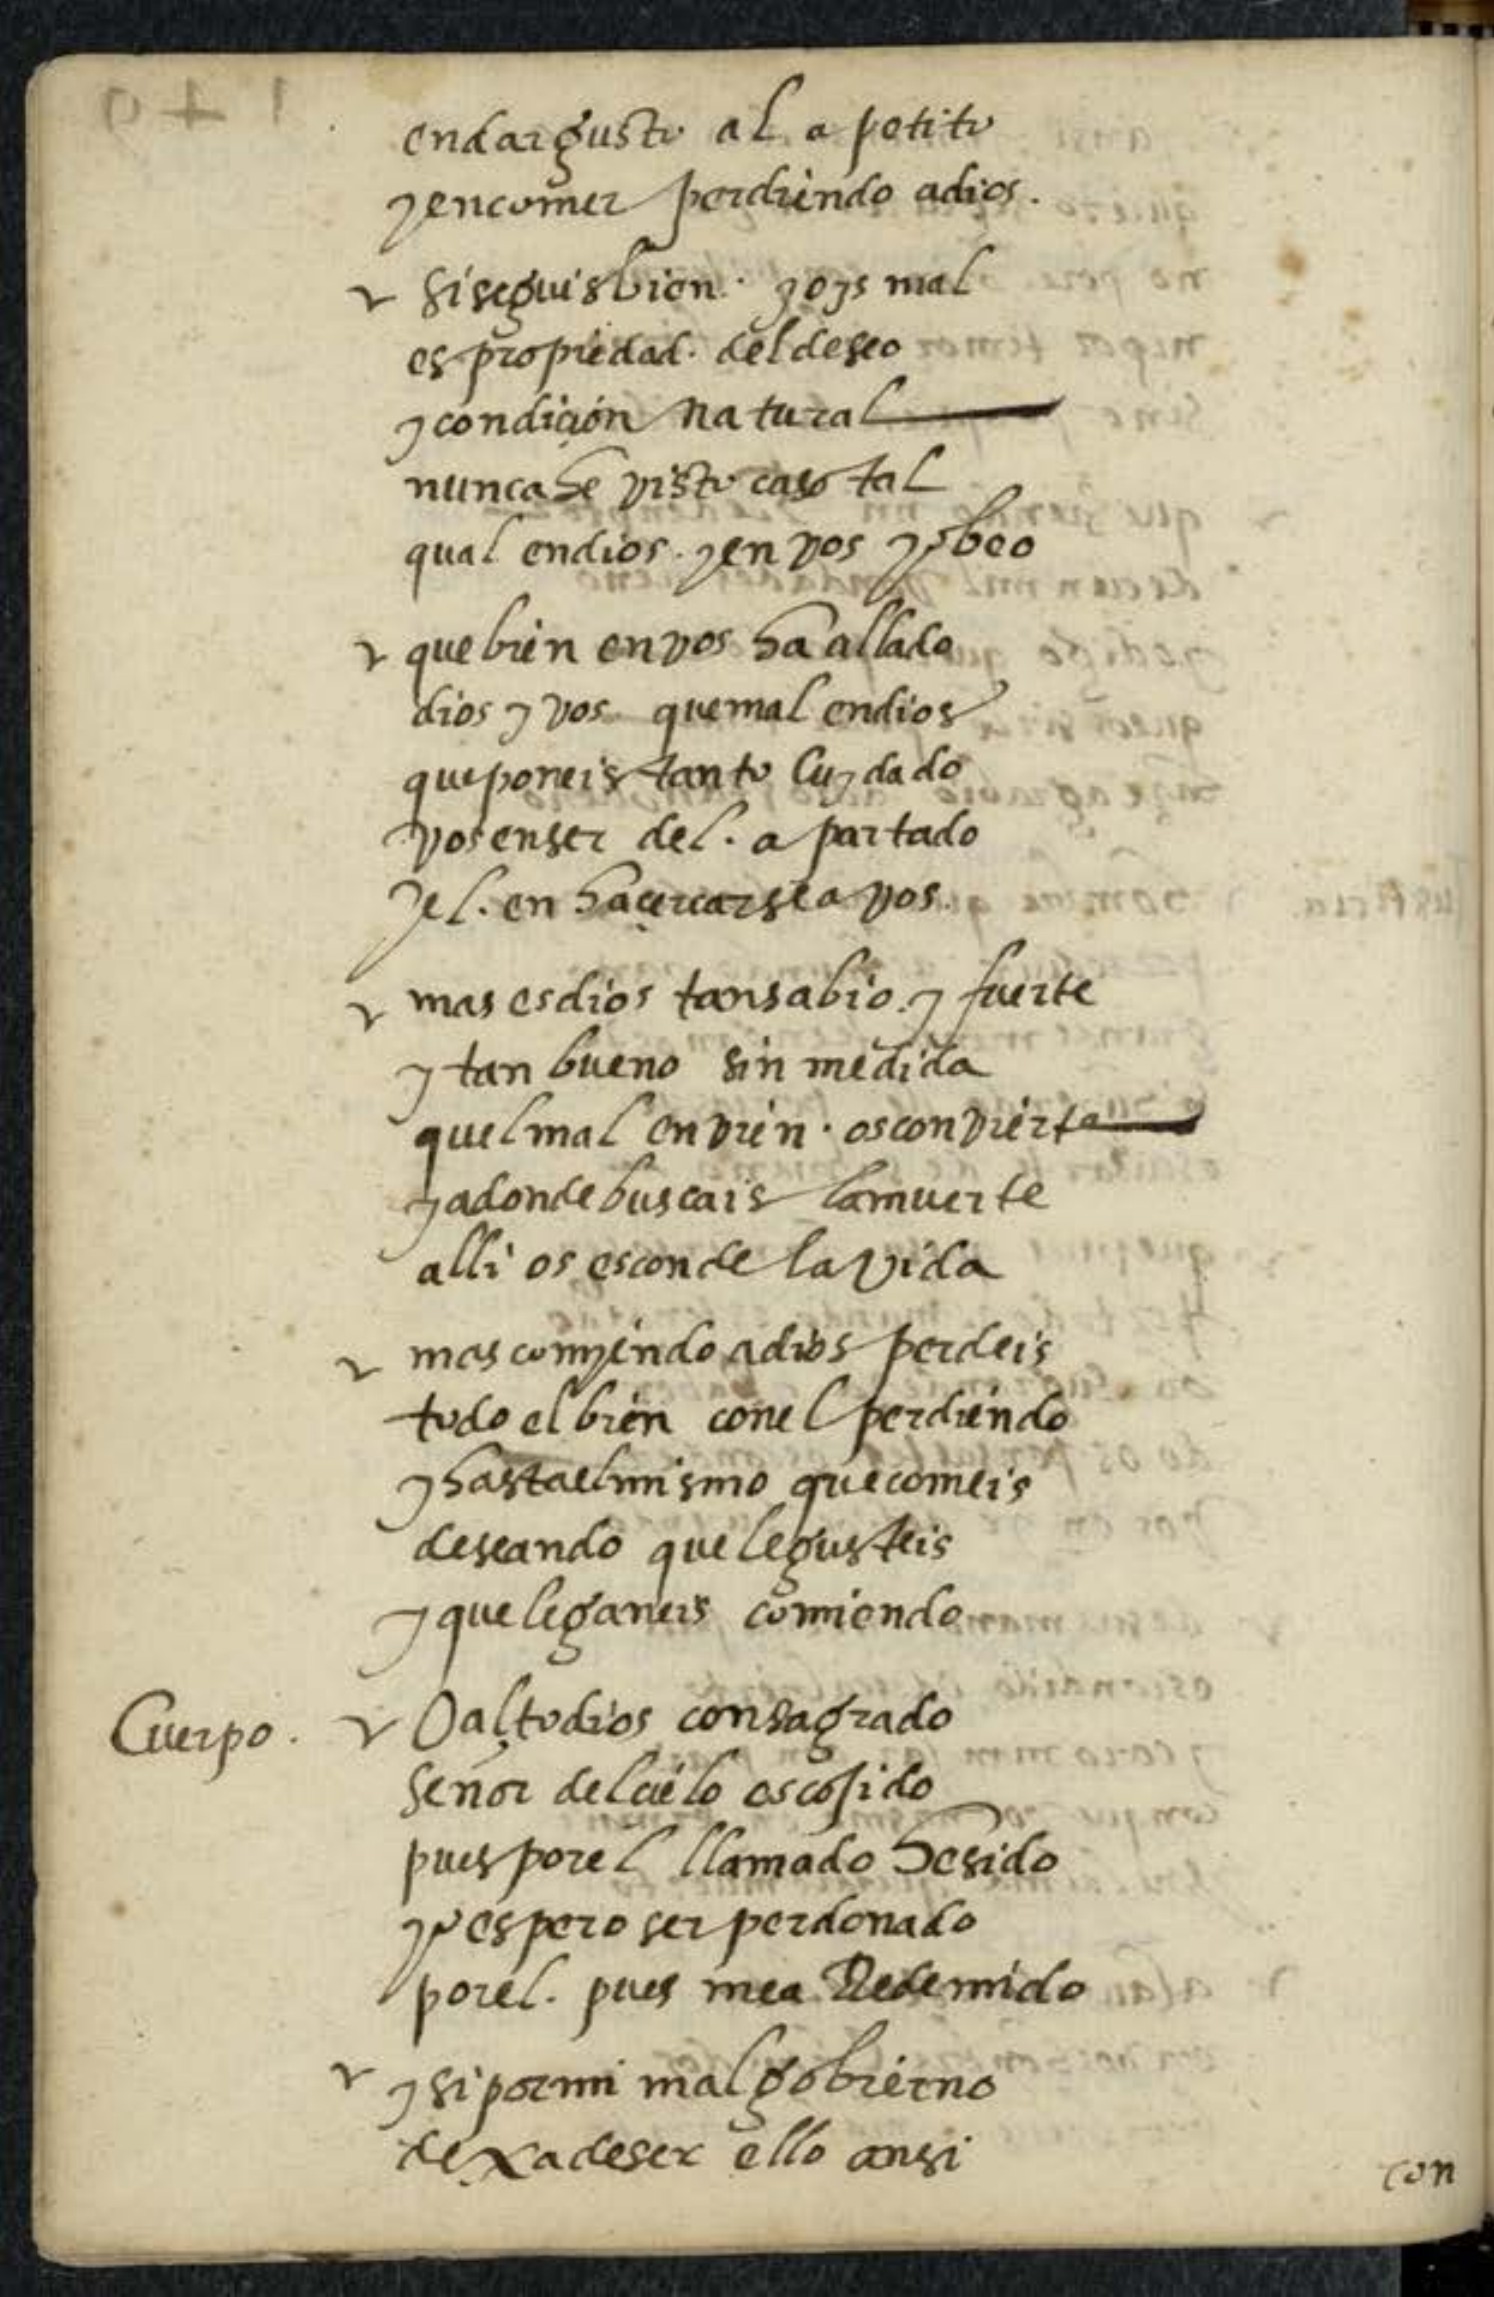 endar gusto al apetito
y encomer perdiendo adios.
si seguis bien. y oys mal
es propiedad. del deseo
y condiçion natural
nunca he visto caso tal
qual endios. y en vos yo beo
que bien en vos ha allado
dios y vos que mal endios
que poneis tanto cuydado
vos enser del. apartado
y el. en haçercarse a vos.
mas es dios tan sabio. y fuerte
y tan bueno sin medida
quel mal en vien. os convierte
y adonde buscais la muerte
alli os esconde la vida
mas comyendo adios perdeis
todo el bien con el perdiendo
y hasta el mismo que comeis
deseando que le gusteis
y que le ganeis comiendo
Cuerpo. O alto dios consagrado
señor del çielo escojido
pues por el llamado he sido
yo espero ser perdonado
por el. pues mea Redemido
y si por mi mal gobierno
dexa de ser ello ansi
con